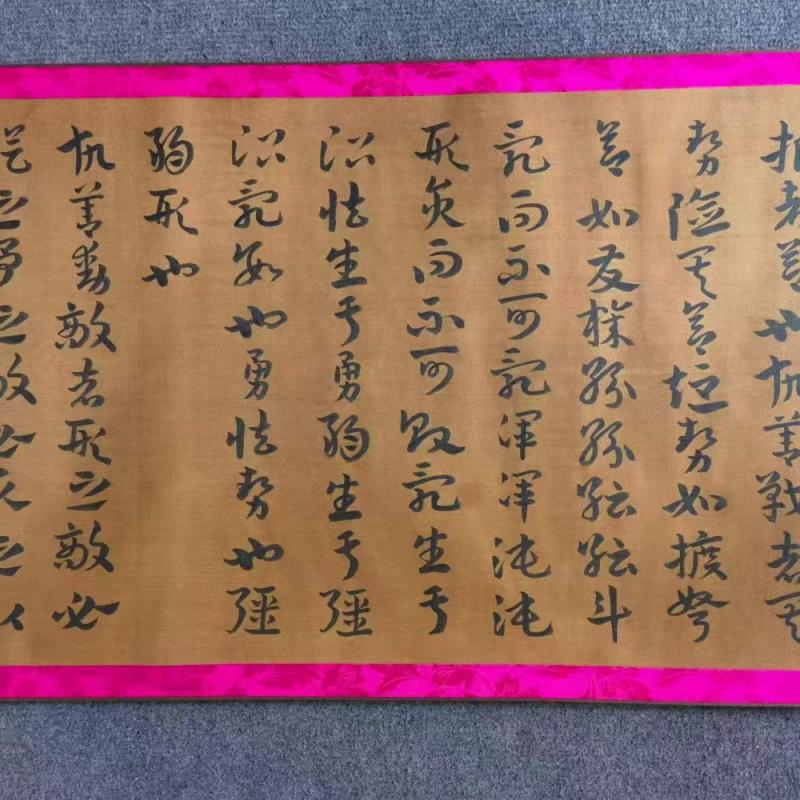 折者節也故善戰者其
勢險其節短勢如擴弩
節如發機紛紛紜紜斗
亂而不可亂渾渾沌沌
形圓而不可敗亂生于
治怯生于勇弱生于彊
治亂數也勇怯勢也彊
弱形也
故善動敵者形之敵必
從之予之敵必取之以